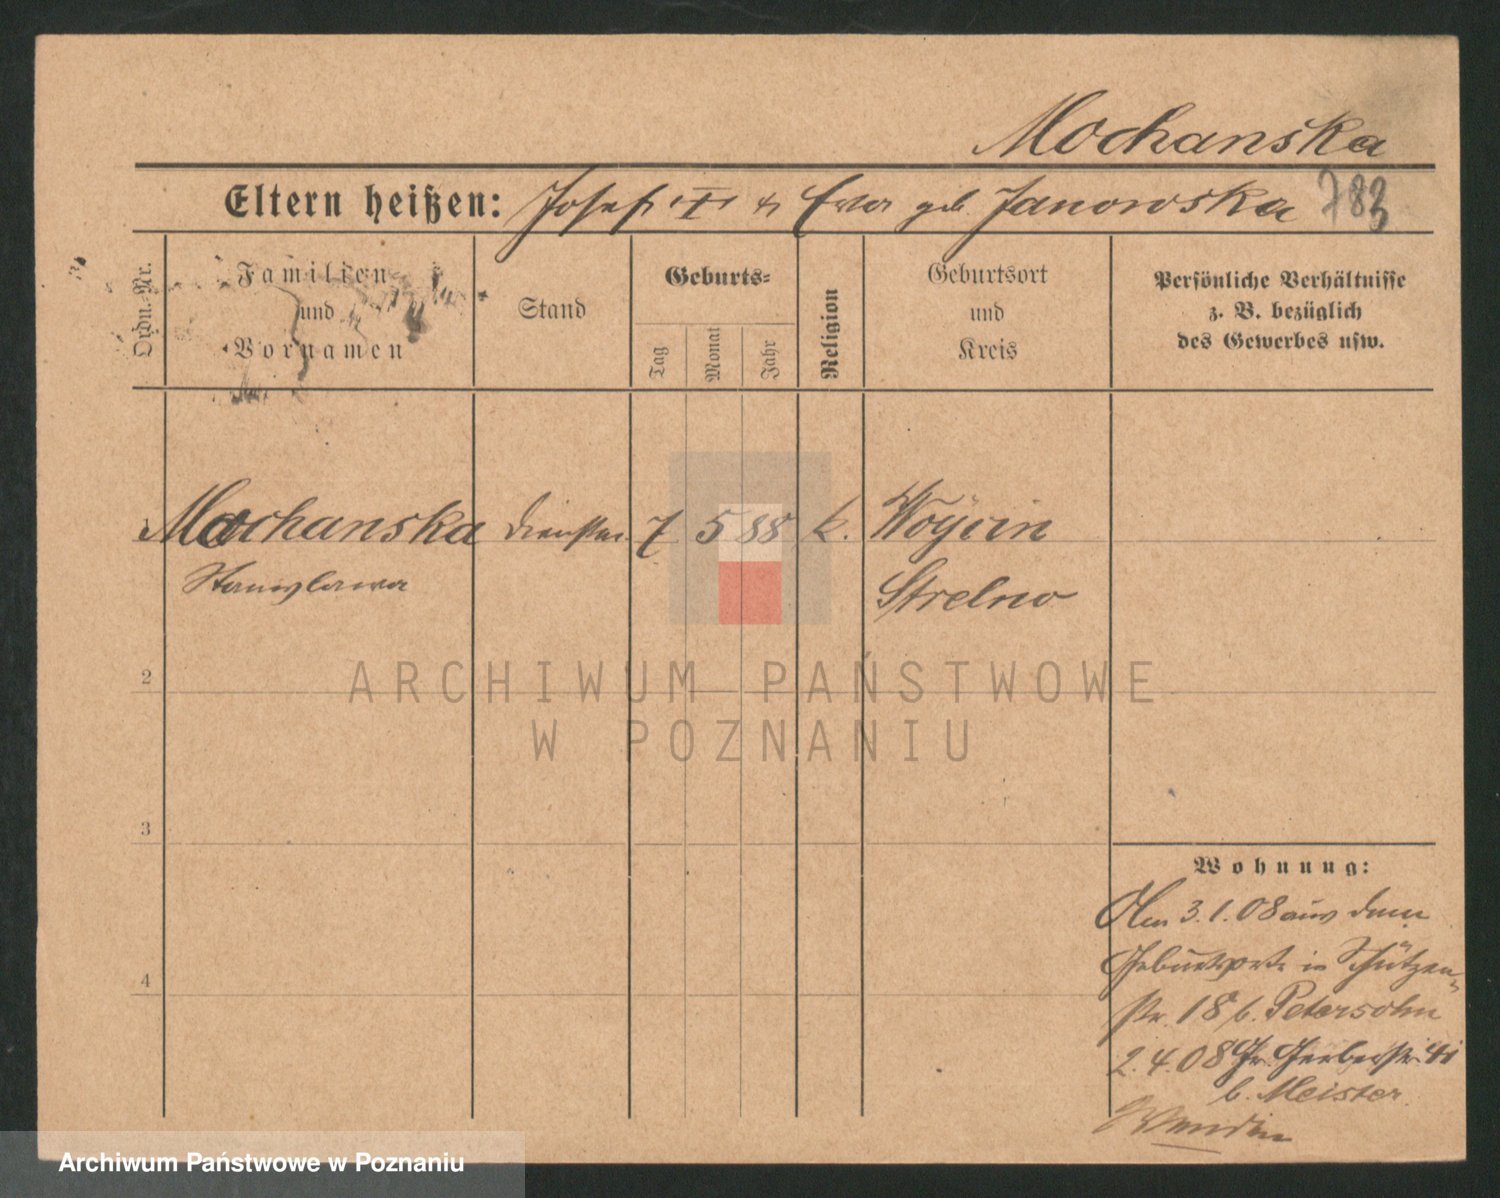 Mochanska
Eltern heißen: Josef † & Eva geb. Janowska 783
Ordn.-Nr.
Familien-
und
Vornamen
Stand
Geburts-
Tag
Monat
Jahr
Religion
Geburtsort
und
Kreis
Persönliche Verhältnisse
z. B. bezüglich
des Gewerbes usw.
Mochanska 7 5 88 k. Woycin
Stanislawa Strelno
2
3
4
Wohnung:
Am 3.1.08 aus dem
Geburtsorte in Schützen-
str. 18 b. Petersohn
2.4.08 Gr. Gerberstr.
b. Meister
ARCHIWUM PAŃSTWOWE
W POZNANIU
Archiwum Państwowe w Poznaniu